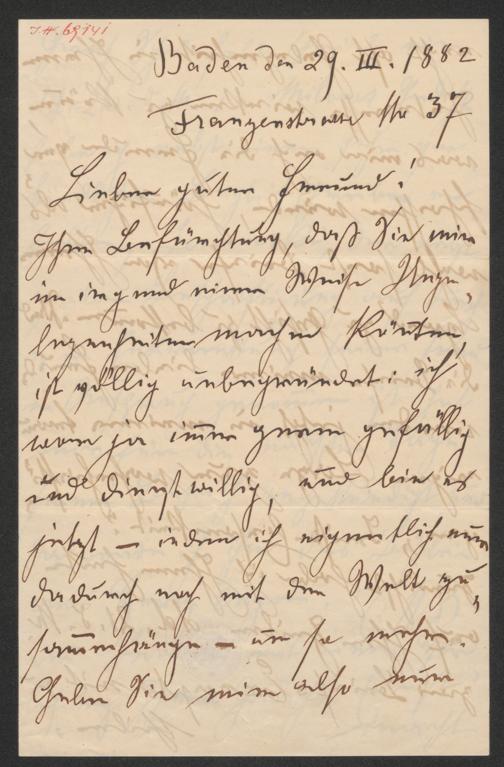 I.N. 69141
Baden den 29. III. 1882
Franzensstrasse No 37
Lieber guter Freund!
Ihre Befürchtung, daß Sie mir
in irgend einer Weise Unge„
legenheiten machen könten,
ist völlig unbegründet: ich
war ja im̄er gern gefällig
und dienstwillig, und bin es
jetzt — indem ich eigentlich nur
dadurch noch mit der Welt zu„
sam̄enhänge — um so mehr.
Geben Sie mir also nur